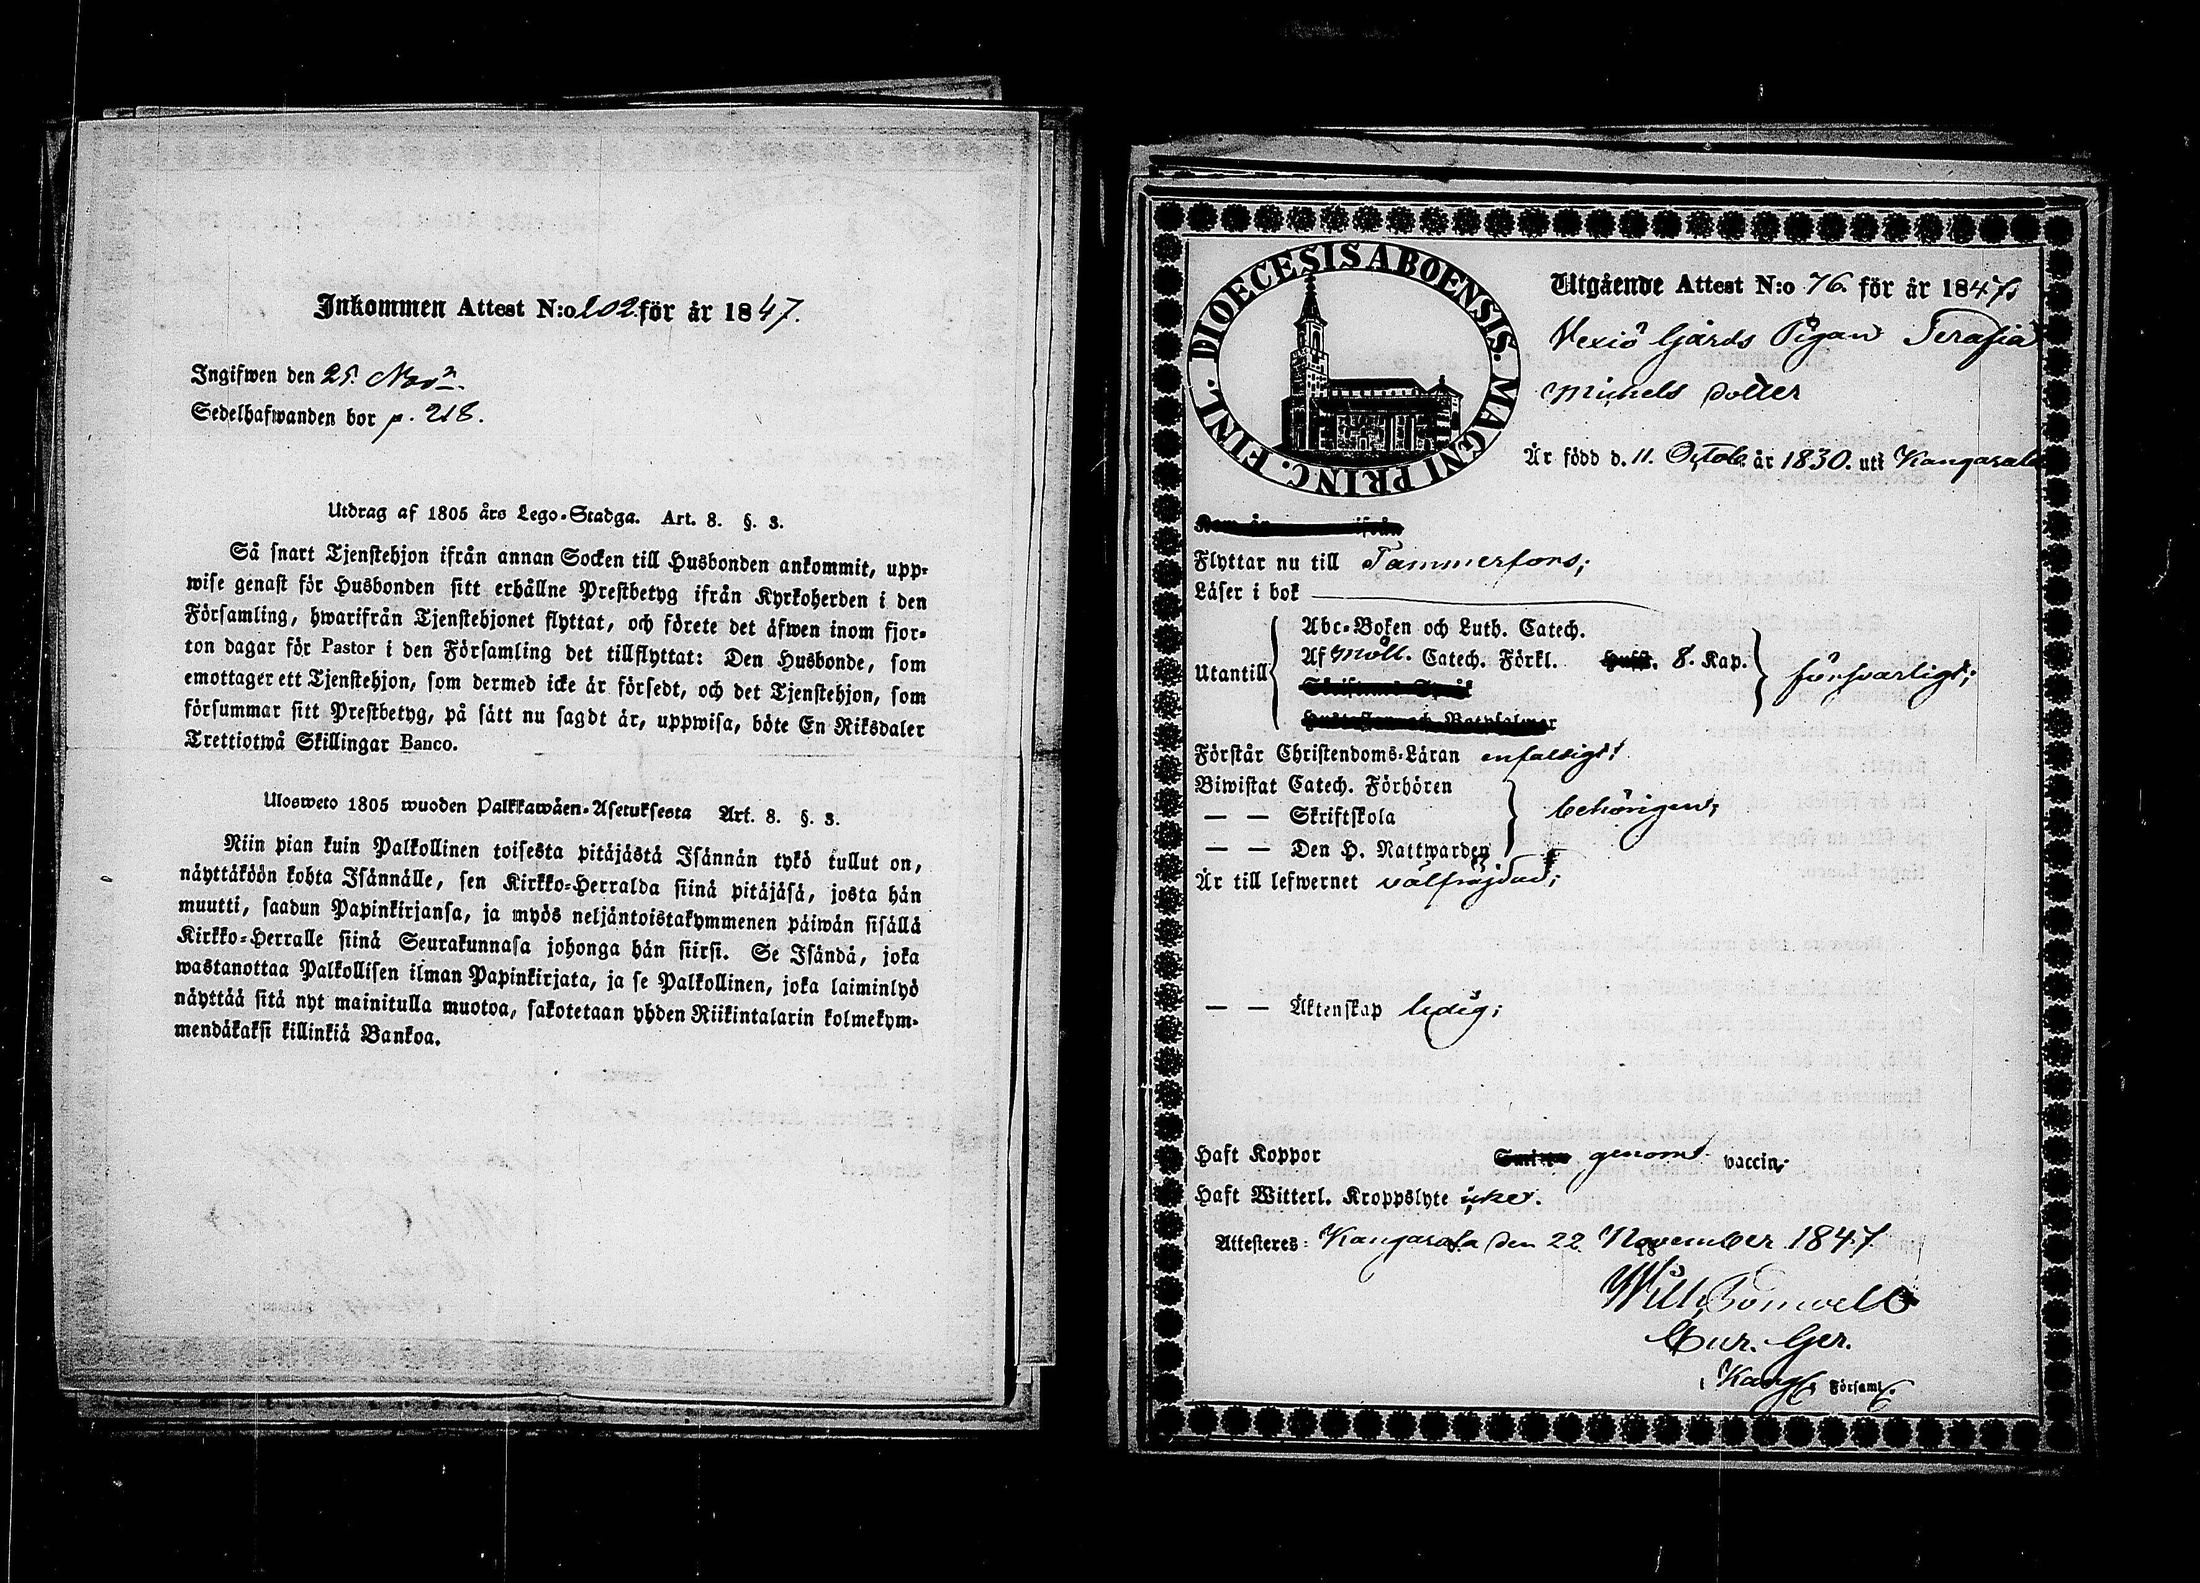 Inkommen Attest N:o 202. för år 1847.
Ingifwen den 25. Nov:r
Sedelhafwanden bor p. 218.
Utdrag af 1805 års Lego-Stadga. Art. 8. §. 3.
Så snart Tjenstehjon ifrån annan Socken till Husbonden ankommit, upp-
wise genast för Husbonden sitt erhållne Prestbetyg ifrån Kyrkoherden i den
Församling, hwarifrån Tjenstehjonet flyttat, och förete det äfwen inom fjor-
ton dagar för Pastor i den Församling det tillflyttat: Den Husbonde, som
emottager ett Tjenstehjon, som dermed icke är försedt, och det Tjenstehjon, som
försummar sitt Prestbetyg, på sätt nu sagdt är, uppwisa, böte En Riksdaler
Trettiotwå Skillingar Banco.
Ulosweto 1805 wuoden Palkkawäen-Asetuksesta Art. 8. §. 3.
Niin pian kuin Palkollinen toisesta pitäjästä Isännän tykö tullut on,
näyttäköön kohta Isännälle, sen Kirkko-Herralda siinä pitäjäsä, josta hän
muutti, saadun Papinkirjansa, ja myös neljäntoistakymmenen päiwän sisällä
Kirkko-Herralle siinä Seurakunnasa johonga hän siirsi. Se Isändä, joka
wastanottaa Palkollisen ilman Papinkirjata, ja se Palkollinen, joka laiminlyö
näyttää sitä nyt mainitulla muotoa, sakotetaan yhden Riikintalarin kolmekym-
mendäkaksi killinkiä Bankoa.
DIOECESIS ABOENSIS. MAGNI PRINC. FINL.
Utgående Attest N:o 76. för år 1847.
Vexiö Gårds Pigan Serafia
Michels dotter
Är född d. 11. Octob. år 1830. uti Kangasala
Flyttar nu till Tammerfors;
Läser i bok
Abc-Boken och Luth. Catech.
Utantill Af Möll. Catech. Förkl. 8. Kap. försvarligt;
Förstår Christendoms-Läran enfaldigt;
Biwistat Catech. Förhören
— — Skriftskola behörigen;
— — Den H. Nattwarden
Är till lefwernet välfräjdad;
— — Äktenskap ledig;
Haft Koppor genom vaccin;
Haft Witterl. Kroppslyte icke.
Attesteres: Kangasala den 22 November 1847
Wilh.
Cur. Ger.
i Kang. Församl.